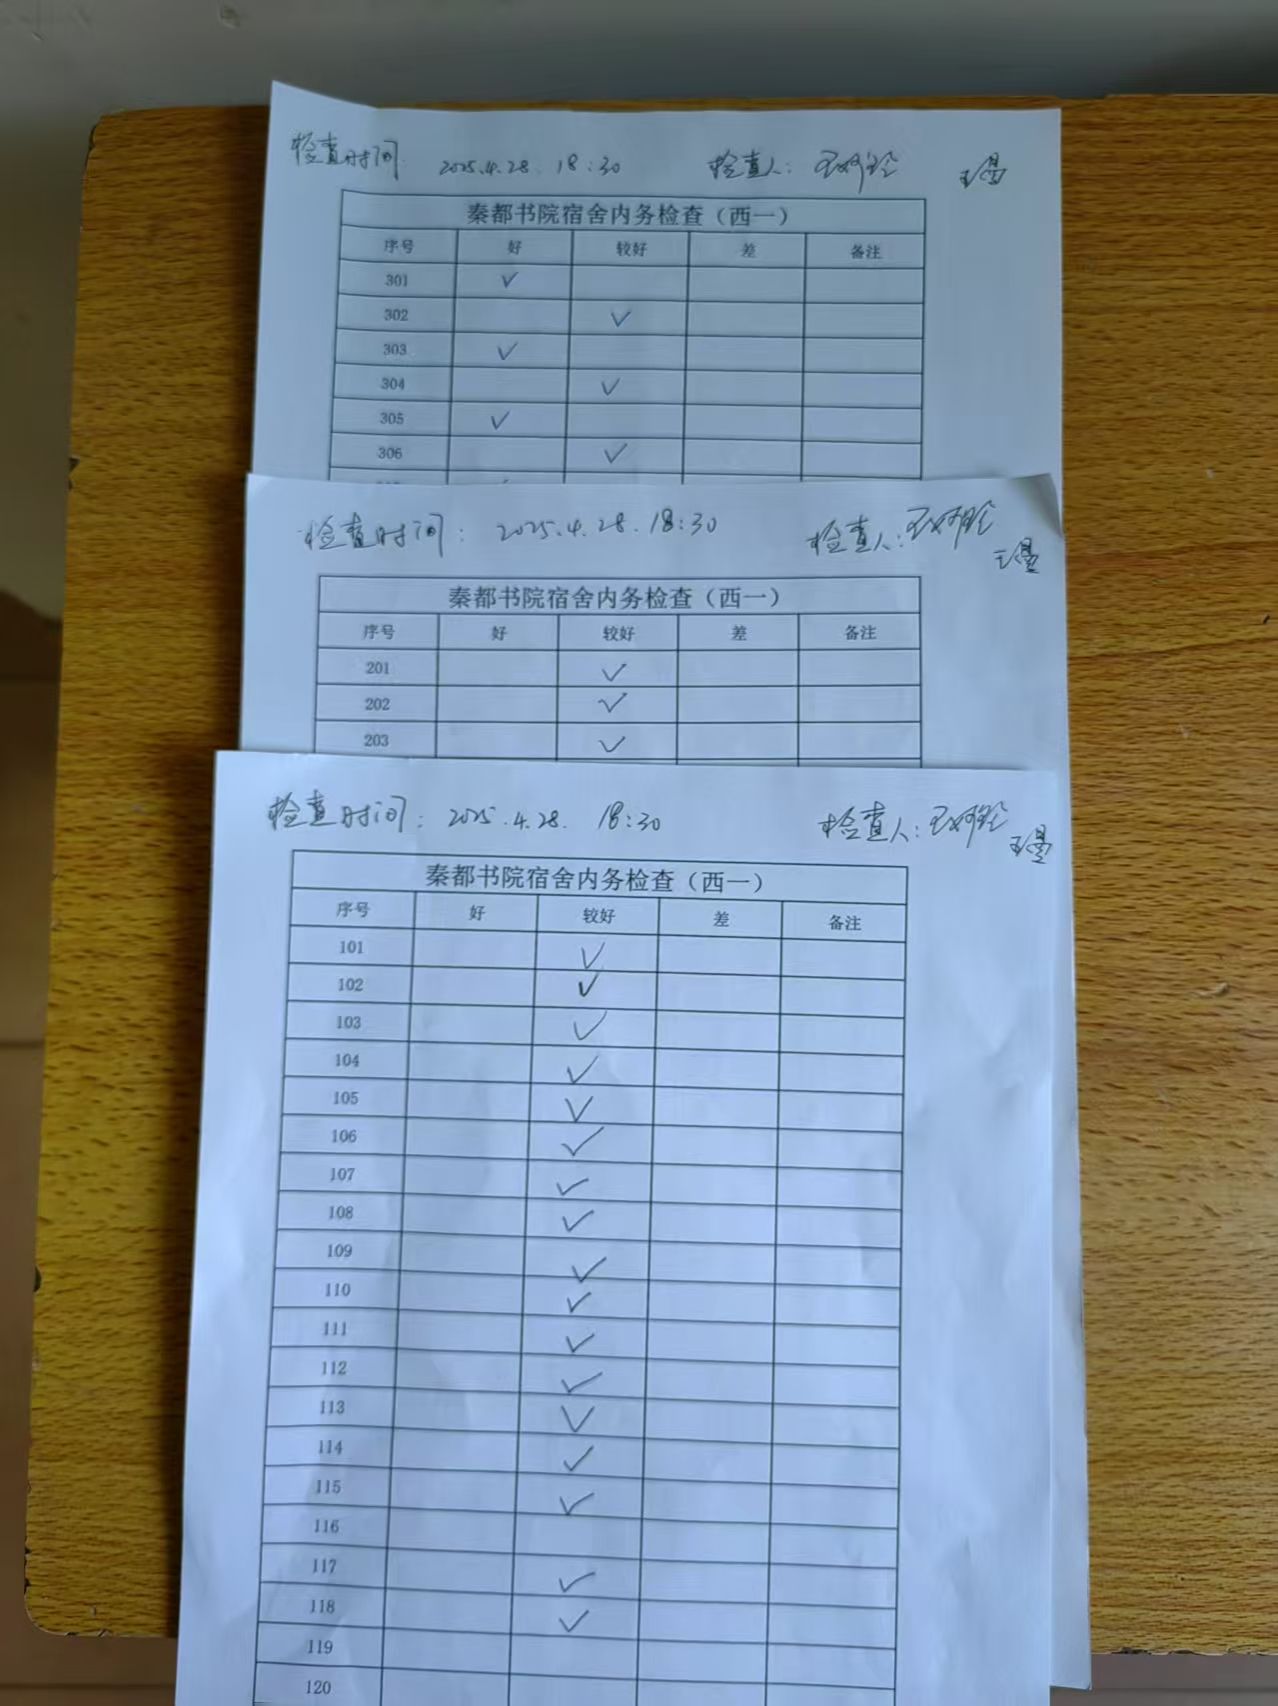 检查时间: 2025.4.28. 18:30 检查人: 王
秦都书院宿舍内务检查（西一）
序号 好 较好 差 备注
301 ✓
302 ✓
303 ✓
304 ✓
305 ✓
306 ✓
检查时间: 2025.4.28. 18:30 检查人: 王
秦都书院宿舍内务检查（西一）
序号 好 较好 差 备注
201 ✓
202 ✓
203 ✓
检查时间: 2025.4.28. 18:30 检查人: 王
秦都书院宿舍内务检查（西一）
序号 好 较好 差 备注
101 ✓
102 ✓
103 ✓
104 ✓
105 ✓
106 ✓
107 ✓
108 ✓
109 ✓
110 ✓
111 ✓
112 ✓
113 ✓
114 ✓
115 ✓
116
117 ✓
118 ✓
119
120